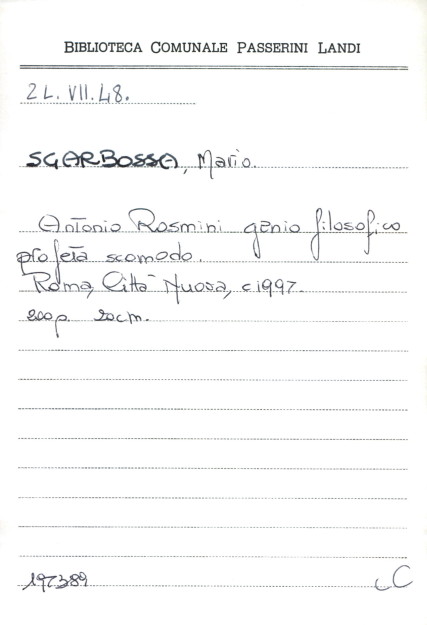 BIBLIOTECA COMUNALE PASSERINI LANDI
2L.VII.48.
SGARBOSSA, Mario.
Antonio Rosmini genio filosofico
profeta scomodo.
Roma, Città Nuova, c1997.
200p. 20cm.
197389